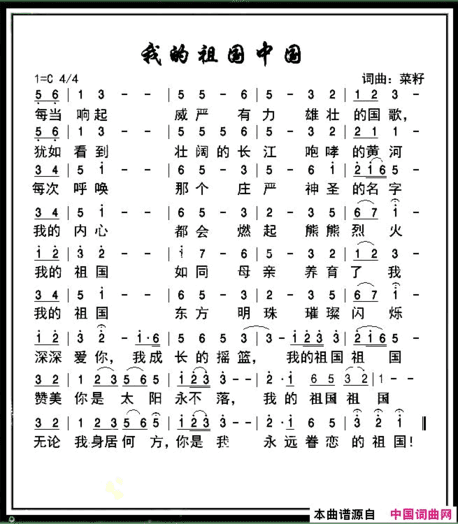 我的祖国中国
1=C 4/4 词曲：菜籽
5 6 | 1 3 - - | 5 5 - 6 | 5 - 3 2 | 1 2 3 - -
每当 响起 威严 有力 雄壮 的国歌，
5 6 | 1 3 - - | 5 5 5 6 | 5 - 3 2 | 2 1 1 - -
犹如 看到 壮阔的长江 咆哮 的黄河
3 4 | 5 1 - - | 6 5 - 3 | 5 - 6 1 | 2 1 6 5 - -
每次 呼唤 那个 庄严 神圣 的名字
3 4 | 5 1 - - | 6 5 - 3 | 2 - 3 5 | 6 7 1 - -
我的 内心 都会 燃起 熊熊 烈 火
1 2 | 3 2 - - | 1 7 - 6 | 5 - 3 2 | 1 2 3 - -
我的 祖国 如同 母亲 养育 了 我
3 4 | 5 1 - - | 6 5 - 3 | 2 - 3 5 | 6 7 1 - -
我的 祖国 东方 明珠 璀璨 闪 烁
1 2 | 3 2 - 1·6 | 5 6 5 3 | 3 - 1 2 3 3 | 2 1 6 5 - -
深深 爱你， 我成长的摇篮， 我的祖国 祖 国
3 2 | 1 2 3 5 6 5 | 1 2 3 3 - - | 2·1 6 5 3 2 | 1 - -
赞美 你是 太 阳 永不 落， 我 的 祖国 祖 国
3 2 | 1 2 3 5 6 5 | 1 2 3 3 - - | 2·1 6 5 | 3 2 1
无论 我身居何 方，你是 我 永远眷恋 的祖国！
本曲谱源自 中国词曲网